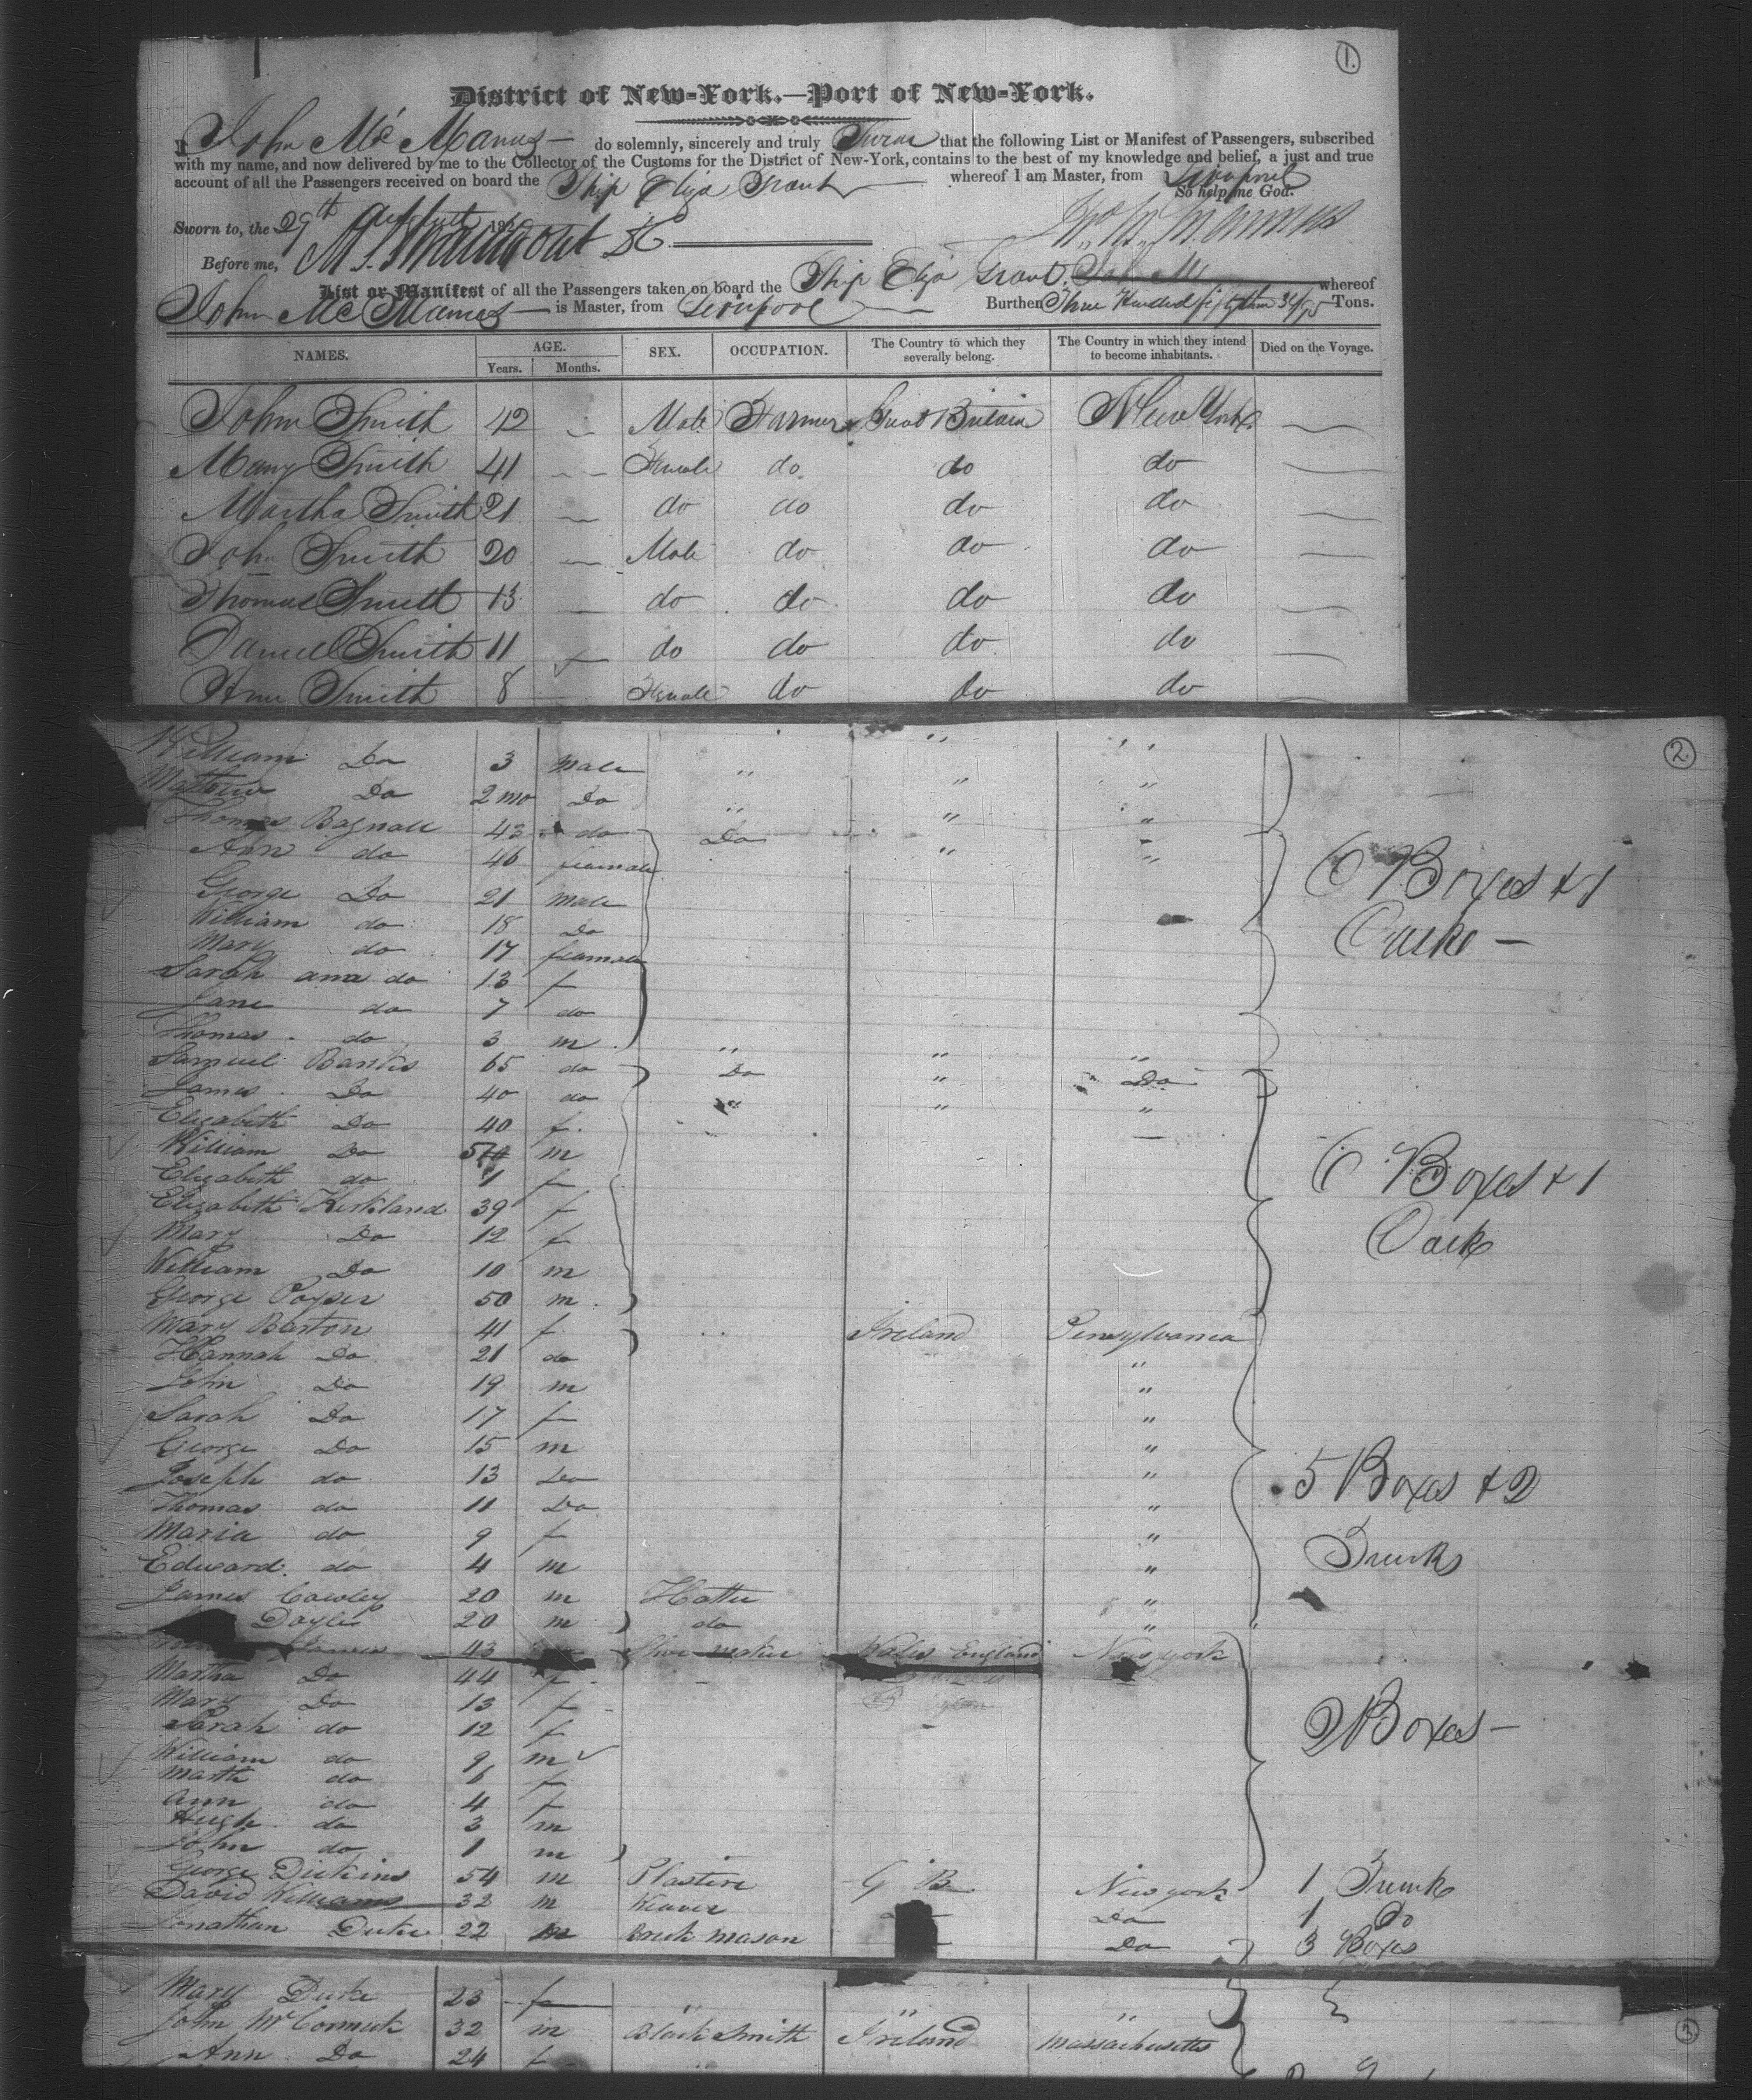 1.
District of New-York.—Port of New-York.
I John Mc Manus do solemnly, sincerely and truly Swear that the following List or Manifest of Passengers, subscribed
with my name, and now delivered by me to the Collector of the Customs for the District of New-York, contains to the best of my knowledge and belief, a just and true
account of all the Passengers received on board the Ship Eliza Grant whereof I am Master, from Liverpool
So help me God.
Sworn to, the 29th August 182
Before me,
List or Manifest of all the Passengers taken on board the Ship Eliza Grant whereof
John Mc Manus is Master, from Liverpool Burthen Three Hundred Tons.
NAMES. AGE. SEX. OCCUPATION. The Country to which they severally belong. The Country in which they intend to become inhabitants. Died on the Voyage.
Years. Months.
John Smith 42 Male Farmer Great Britain New York
Mary Smith 41 Female do do do
Martha Smith 21 do do do do
John Smith 20 Male do do do
Thomas Smith 13 do do do do
Daniell Smith 11 do do do do
Ann Smith 8 Female do do do
2.
William Do 3 Male " " "
Mathew Do 2 mo Do " " "
Thomas Bagnall 43 do Do " "
Ann do 46 female " "
George Do 21 Male
6 Boxes & 1
William do 18 Do
Mary do 17 female
Cask —
Sarah ann do 13 f
Jane do 7 do
Thomas do 3 m " " "
Samuel Banks 65 do Do " Do
James Do 40 do " " "
Elizabeth Do 40 f.
William Do 5 m
Elizabeth do 1 f
6 Boxes & 1
Elizabeth Kirkland 39 f
Mary Do 12 f
Cask
William Do 10 m
George Poyser 50 m.
Mary Barton 41 f. " Ireland Pensylvania
Hannah Do 21 do "
John Do 19 m "
Sarah Do 17 f "
George Do 15 m "
Joseph do 13 Do "
5 Boxes & 2
Thomas do 11 Do "
Maria do 9 f "
Trunks
Edward do 4 m "
James Cowley 20 m Hatter "
Doyle 20 m do "
43 Shoe maker Wales England New york
Martha Do 44 f
Mary Do 13 f
Sarah do 12 f
2 Boxes —
William do 9 m
Marth do 6 f
Ann do 4 f
Hugh do 3 m
John do 1 m
George Dickins 54 m Plasterer G B New york 1 Trunk
David Williams 32 m Weaver Do 1 Do
Jonathan Duke 22 m Brick Mason Do 3 Boxes
Mary Duke 23 f " " "
John McCormick 32 m Black Smith Ireland Massachusetts
3.
Ann Do 24 f "